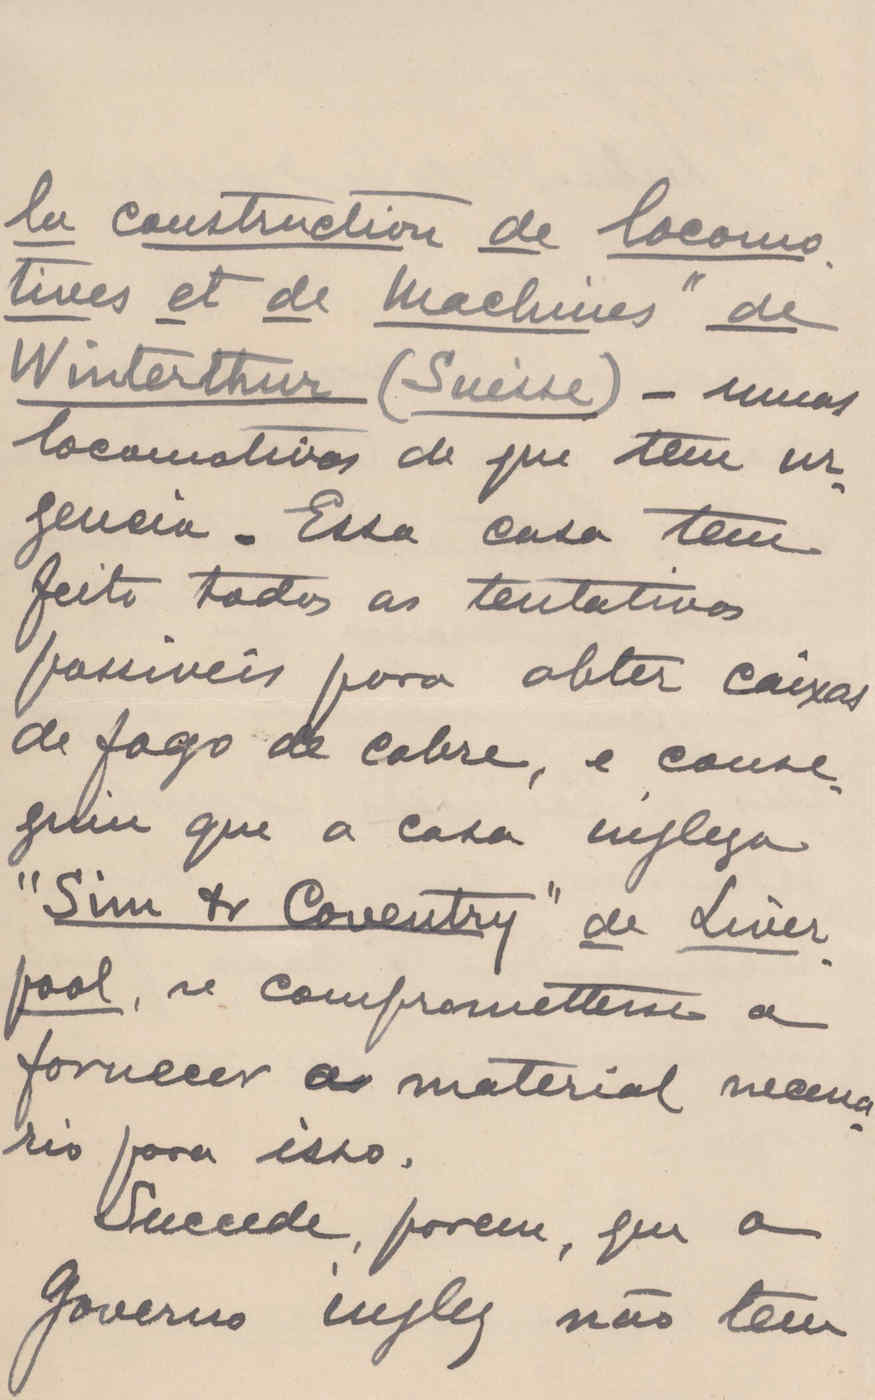 la construction de locomo-
tives et de Machines" de
Winterthur (Suisse) - umas
locomotivas de que tem ur-
gencia. Essa casa tem
feito todas as tentativas
possiveis para obter caixas
de fogo de cobre, e conse-
guiu que a casa ingleza
"Sim & Coventry" de Liver-
pool, se compromettesse a
fornecer o material necessa-
rio para isso.
Succede, porem, que o
Governo inglez não tem